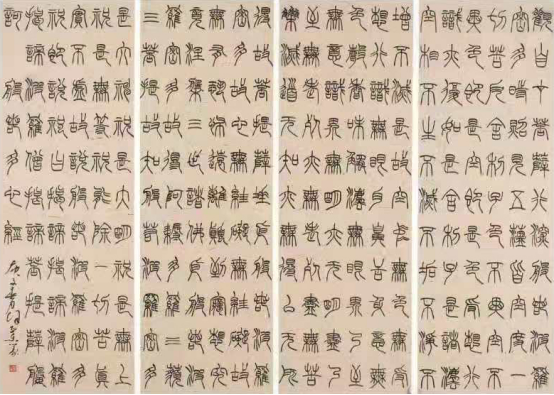 觀自在菩薩行深般若波羅
密多時照見五蘊皆空度一
切苦厄舍利子色不異空空不
異色色即是空空即是色受想行
識亦復如是舍利子是諸法
空相不生不滅不垢不淨不
增不減是故空中無色無受
想行識無眼耳鼻舌身意無
色聲香味觸法無眼界乃至
無意識界無無明亦無無明盡乃
至無老死亦無老死盡無苦
集滅道無知亦無得以無所
得故菩提薩埵依般若波羅
密多故心無罣礙無罣礙故
無有恐怖遠離顛倒夢想究
竟涅槃三世諸佛依般若波
羅密多故得阿耨多羅三藐
三菩提故知般若波羅密多
是大神祝是大明祝是無上
祝是無等等祝能除一切苦真
實不虛故說般若波羅密多
祝即說祝曰揭諦揭諦波羅
揭諦波羅僧揭諦菩提薩婆
訶 般若多心經